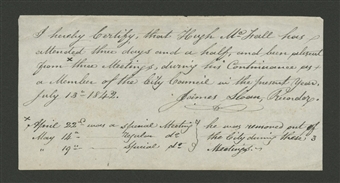 I hereby Certify, that Hugh McFall has
attended three days and a half, and been absent
from * three Meetings, during his Continuance as
a Member of the City Council in the present Year.
July 13th 1842.
James Sloan, Recorder
* April 22d was a special Meeting } he was removed out of
May 14th Regular do } the City during these 3
" 19th Special do } Meetings.